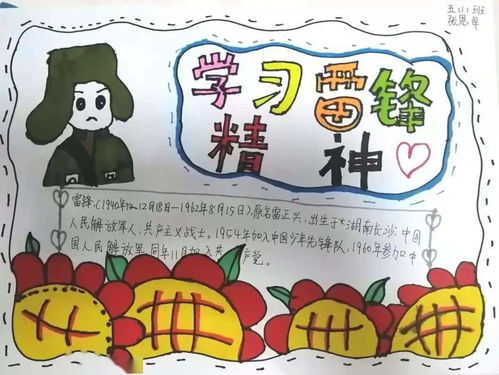 五(1)班
张恩卓
学习雷锋
精神
雷锋(1940年12月18日—1962年8月15日)原名雷正兴,出生于湖南长沙,中国
人民解放军人,共产主义战士,1954年加入中国少年先锋队,1960年参加中
国人民解放军,同年11月加入共产党。